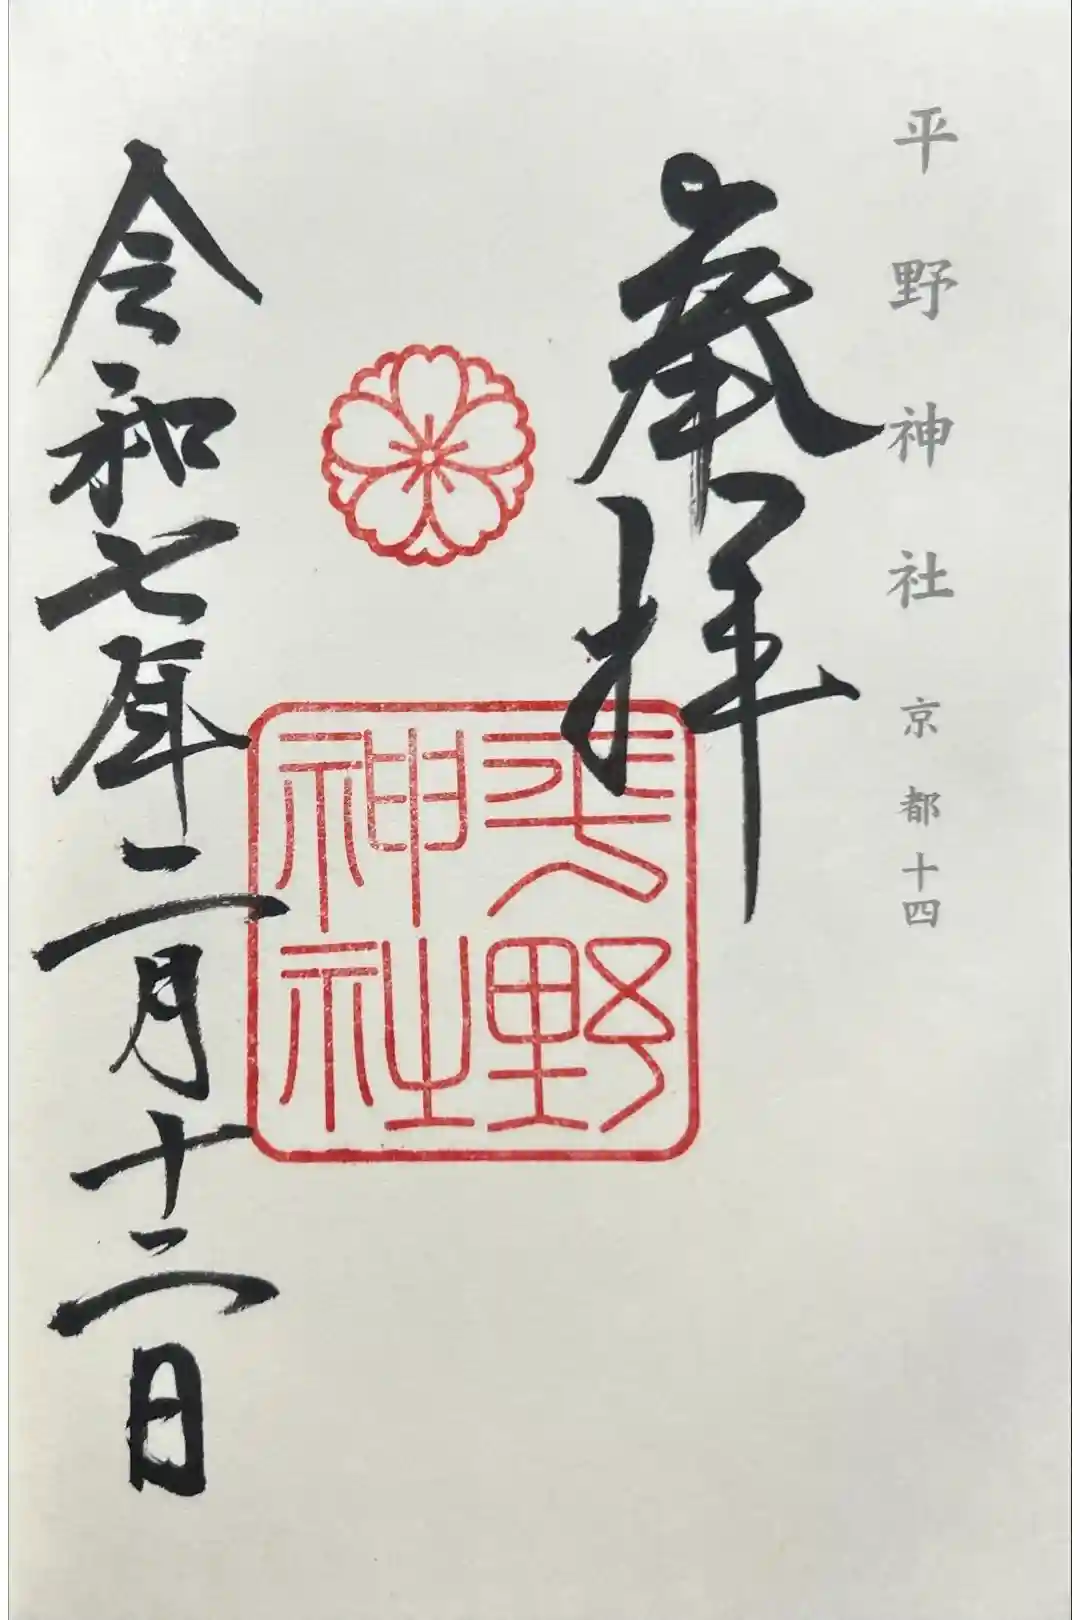 平野神社 京都十四
奉拝
平野神社
令和七年二月十二日